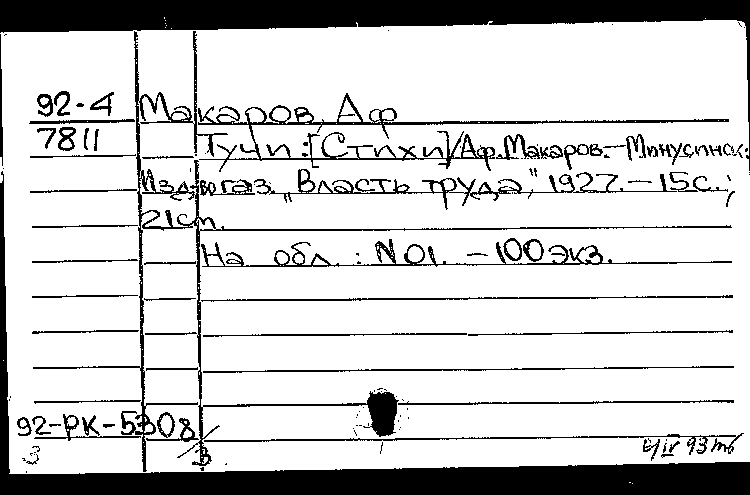 92-4 Макаров, Аф
7811 Тучи: [Стихи]/Аф. Макаров.-Минусинск:
Изд-во газ. „Власть труда", 1927.-15с.;
21см.
На обл.: №1. -100экз.
92-РК-5308
3 3 4/IV 93